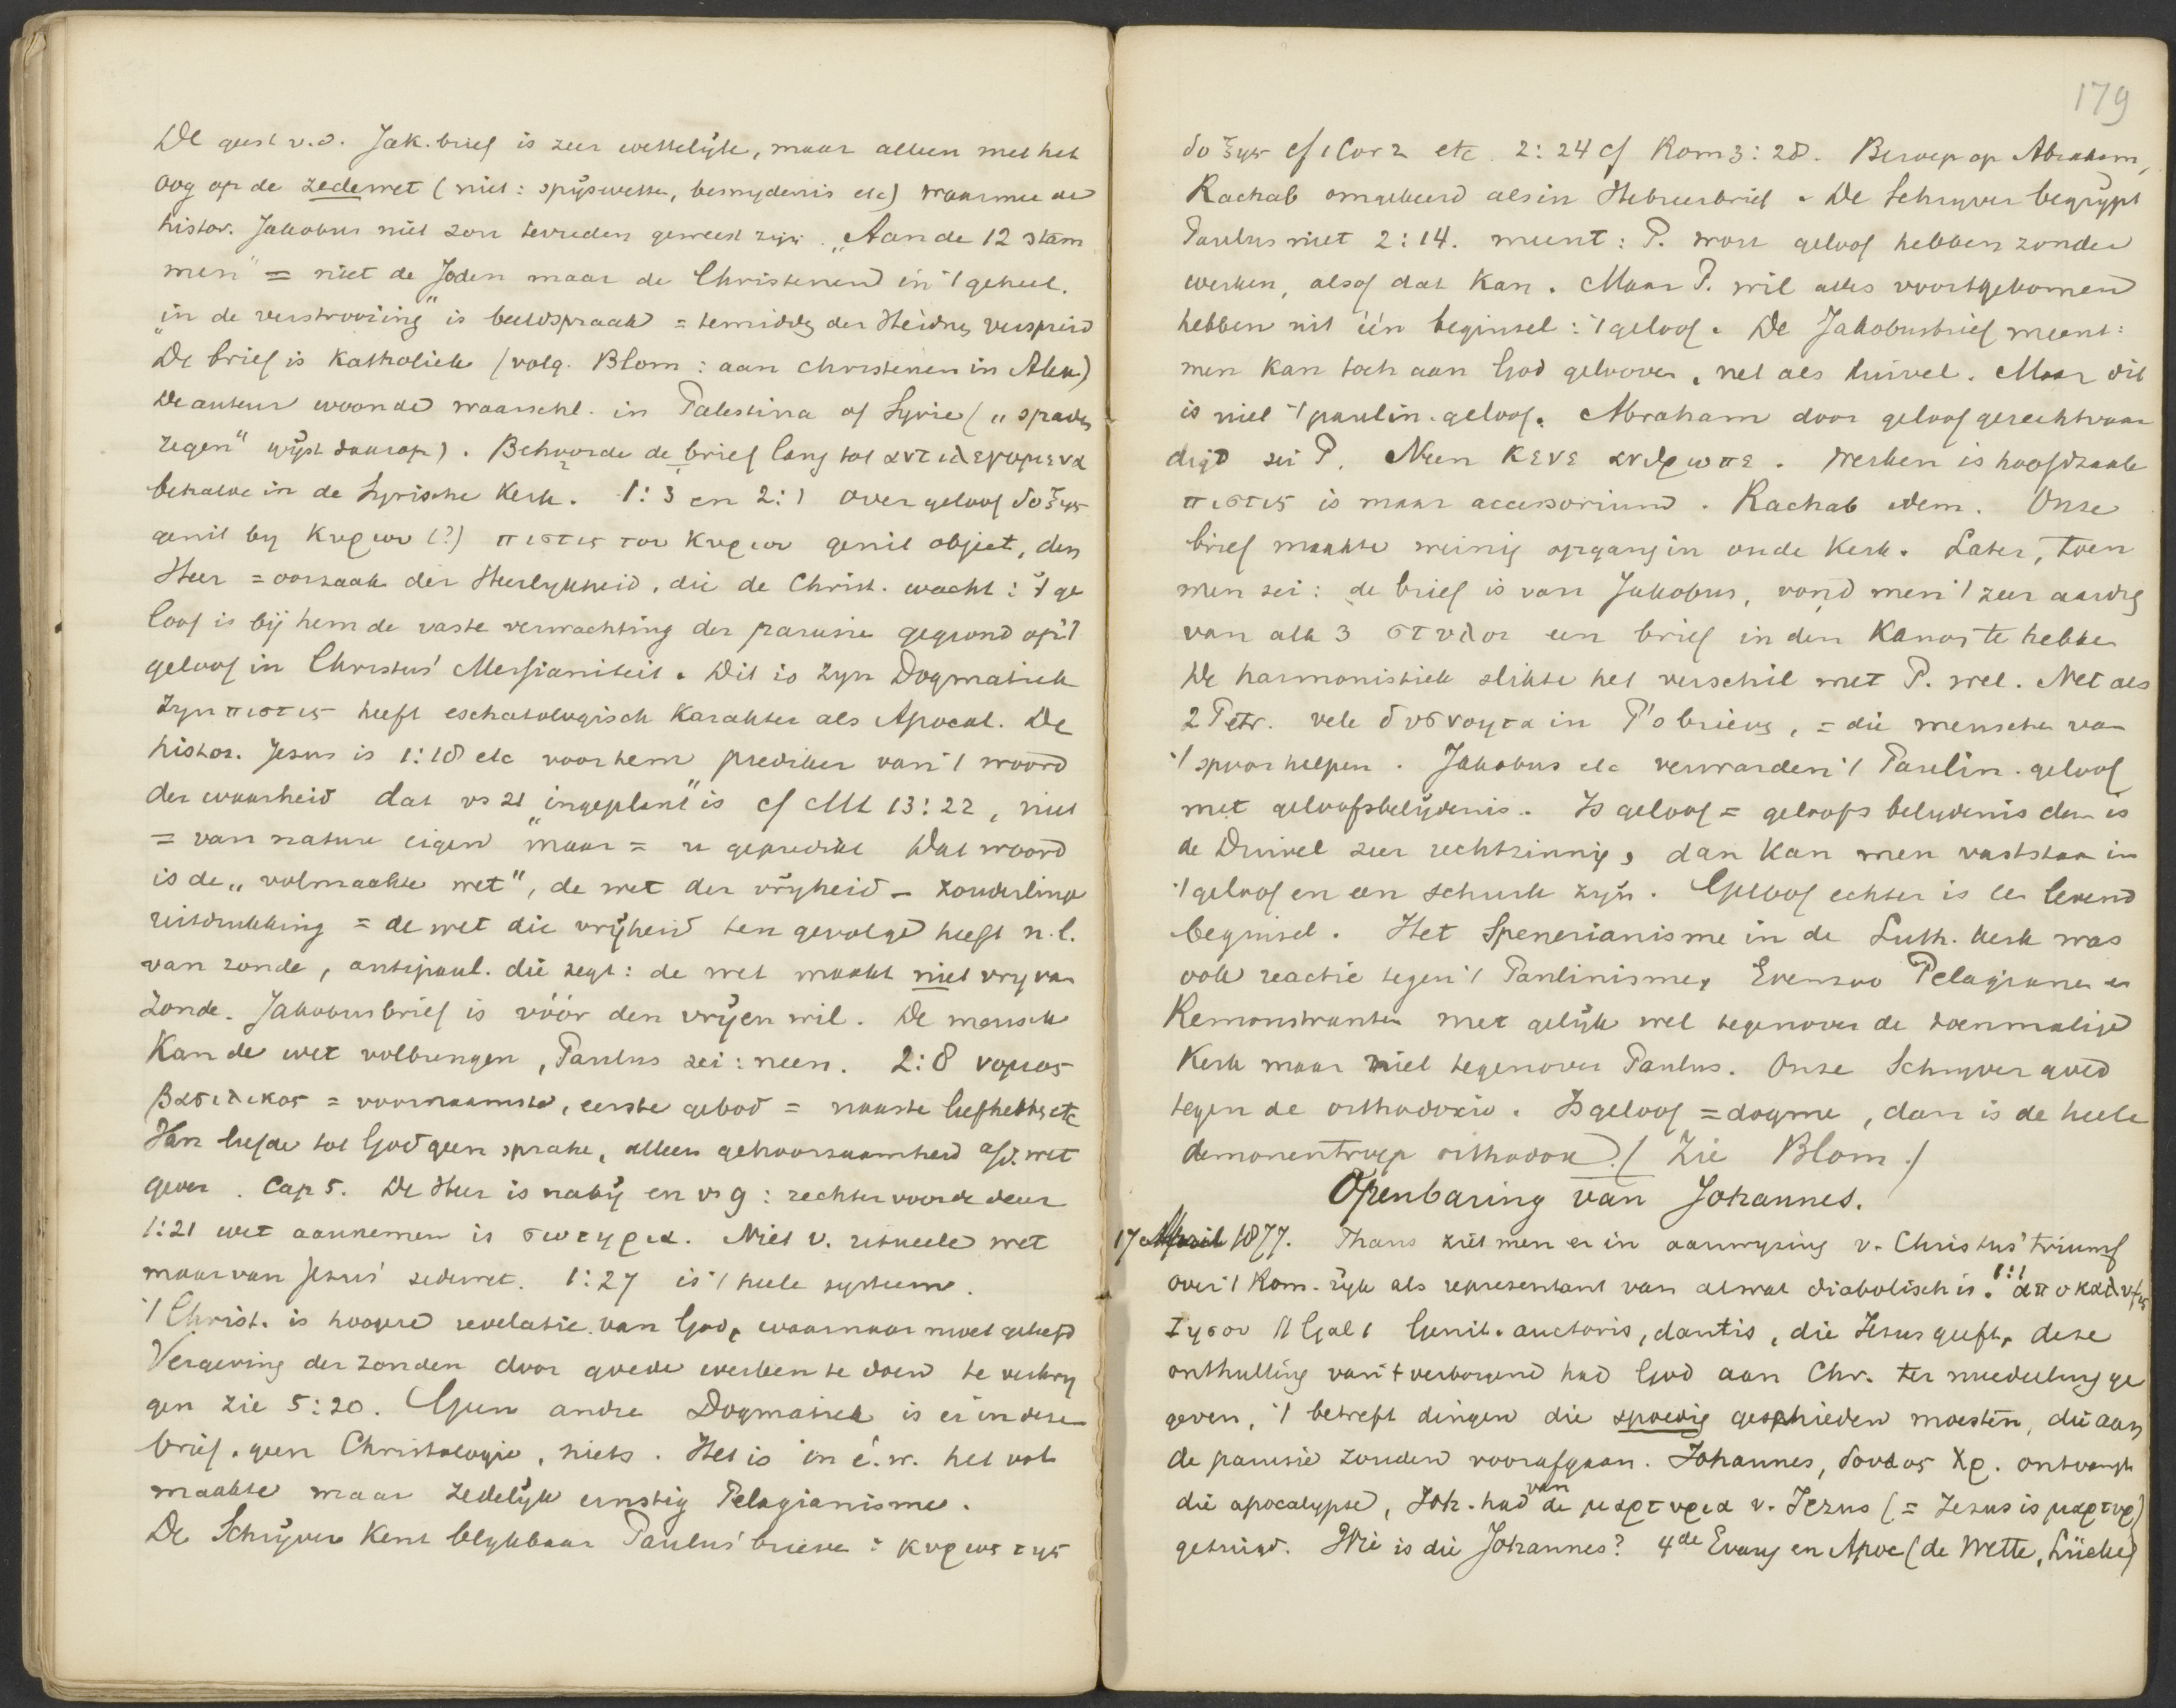 De geest v.d. Jak. brief is zeer wettelijk, maar alleen met het
oog op de zedewet (niet: spijswetten, besnydenis etc) waarmee de
histor. Jakobus niet zou tevreden geweest zijn. "Aan de 12 stam
men" = niet de Joden maar de Christenen in 't geheel.
"in de verstrooiing" is beeldspraak = temidden der Heidnen verspreid
De brief is Katholiek (volg. Blom: aan christenen in Alex)
De auteur woonde waarschl. in Palestina of Syrie ("spaden
regen" wijst daarop). Behoorde de brief lang tot αντιλεγομενα
behalve in de Syrische Kerk. 1:3 en 2:1 over geloof δοξης
genit by Κυριου (?) πιστις του Κυριου genit object, den
Heer = oorzaak der Heerlykheid, die de Christ. wacht: 't ge
loof is bij hem de vaste verwachting der parusie gegrond op 't
geloof in Christus' Messianiteit. Dit is zyn Dogmatiek
Zyn πιστις heeft eschatologisch karakter als Apocal. De
histor. Jesus is 1:18 etc voor hem prediker van 't woord
der waarheid dat vs 21 "ingeplant" is cf Mt 13:22, niet
= van nature eigen maar = u gepredikt Dat woord
is de "volmaakte wet", de wet der vryheid – zonderlinge
uitdrukking = de wet die vrijheid ten gevolge heeft n.l.
van zonde, antipaul. die zegt: de wet maakt niet vry van
zonde. Jakobusbrief is vóór den vrijen wil. De mensch
Kan de wet volbrengen, Paulus zei: neen. 2:8 νομος
βασιλικος = voornaamste, eerste gebod = naaste liefhebben etc
Van liefde tot God geen sprake, alleen gehoorzaamheid a/d. wet
gever. Cap 5. De Heer is nabij en vs 9: rechter voor de deur
1:21 wet aannemen is σωτηρια. Niet v. ritueele wet
maar van Jesus' zedewet. 1:27 is 't heele systeem.
't Christ. is hoogere revelatie van God, waarnaar moet geleefd
Vergeving der zonden door goede werken te doen te verkry
gen zie 5:20. Geen andre Dogmatiek is er in deze
brief. geen Christologie, niets. Het is in é.w. het vol
maakte maar zedelijk ernstig Pelagianisme.
De Schrijver kent blykbaar Paulus' brieven: κυριος της
179
δοξης cf 1 Cor 2 etc. 2:24 cf Rom 3:28. Beroep op Abraham,
Rachab omgekeerd als in Hebreerbrief. De Schryver begrijpt
Paulus niet 2:14. meent: P. wou geloof hebben zonder
werken, alsof dat kan. Maar P. wil alles voortgekomen
hebben uit één beginsel: 't geloof. De Jakobusbrief meent:
men kan toch aan God gelooven, net als duivel. Maar dit
is niet 't paulin. geloof. Abraham door geloof gerechtvaar
digd zei P. Neen κενε ανθρωπε. Werken is hoofdzaak
πιστις is maar accessorium. Rachab idem. Onze
brief maakte weinig opgang in oude Kerk. Later, toen
men zei: de brief is van Jakobus, vond men 't zeer aardig
van alle 3 στυλοι een brief in den Kanon te hebben
De harmonistiek slikte het verschil met P. wel. Net als
2 Petr. vele δυσνοητα in P's brieven, = die menschen van
't spoor helpen. Jakobus etc verwarden 't Paulin. geloof
met geloofsbelijdenis. Is geloof = geloofs belydenis dan is
de Duivel zeer rechtzinnig, dan kan men vaststaan in
't geloof en een schurk zijn. Geloof echter is een levend
beginsel. Het Spenerianisme in de Luth. Kerk was
ook reactie tegen 't Paulinisme, Evenzoo Pelagianen en
Remonstranten met gelijk wel tegenover de toenmalige
Kerk maar niet tegenover Paulus. Onze Schryver goed
tegen de orthodoxie. Is geloof = dogma, dan is de heele
demonentroep orthodox. (Zie Blom.)
Openbaring van Johannes.
17 April 1877. Thans ziet men er in aanwyzing v. Christus' triumf
over 't Rom. rijk als representant van alwat diabolisch is. 1:1 αποκαλυψις
Ιησου Gal 1 Genit. auctoris, dantis, die Jesus geeft, deze
onthulling van 't verborgene had God aan Chr. ter mededeeling ge
geven, 't betreft dingen die spoedig geschieden moesten, die aan
de parusie zouden voorafgaan. Johannes, δουλος Χρ. ontvangt
die apocalypse, Joh. had van de μαρτυρια v. Jezus (= Jezus is μαρτυρ)
getuigd. Wie is die Johannes? 4de Evang en Apoc (de Wette, Lücke)